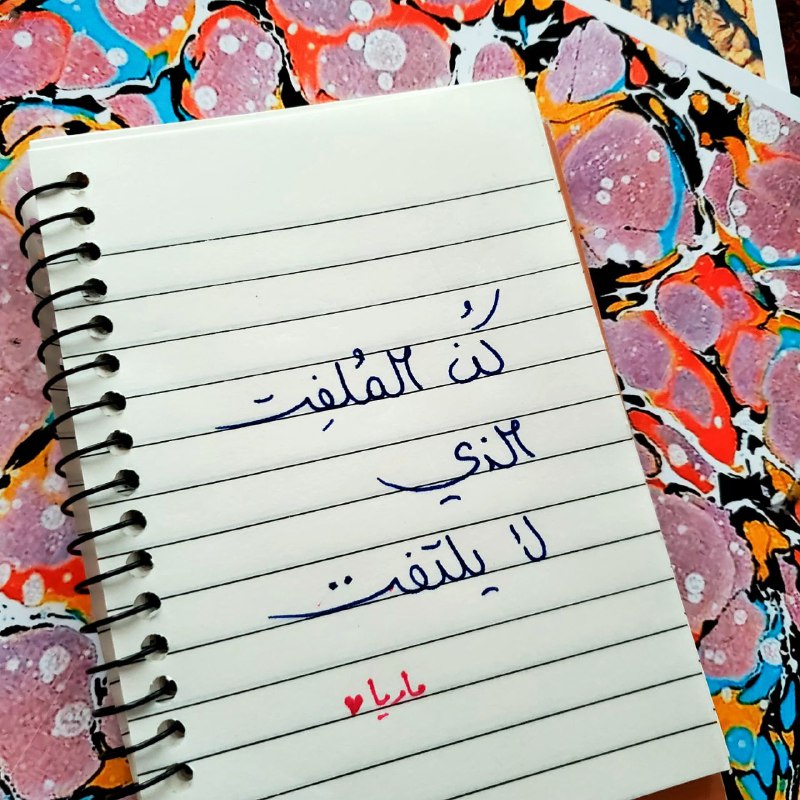 كُن المُلفِت
الذي
لا يلتفت
ماريا ♥